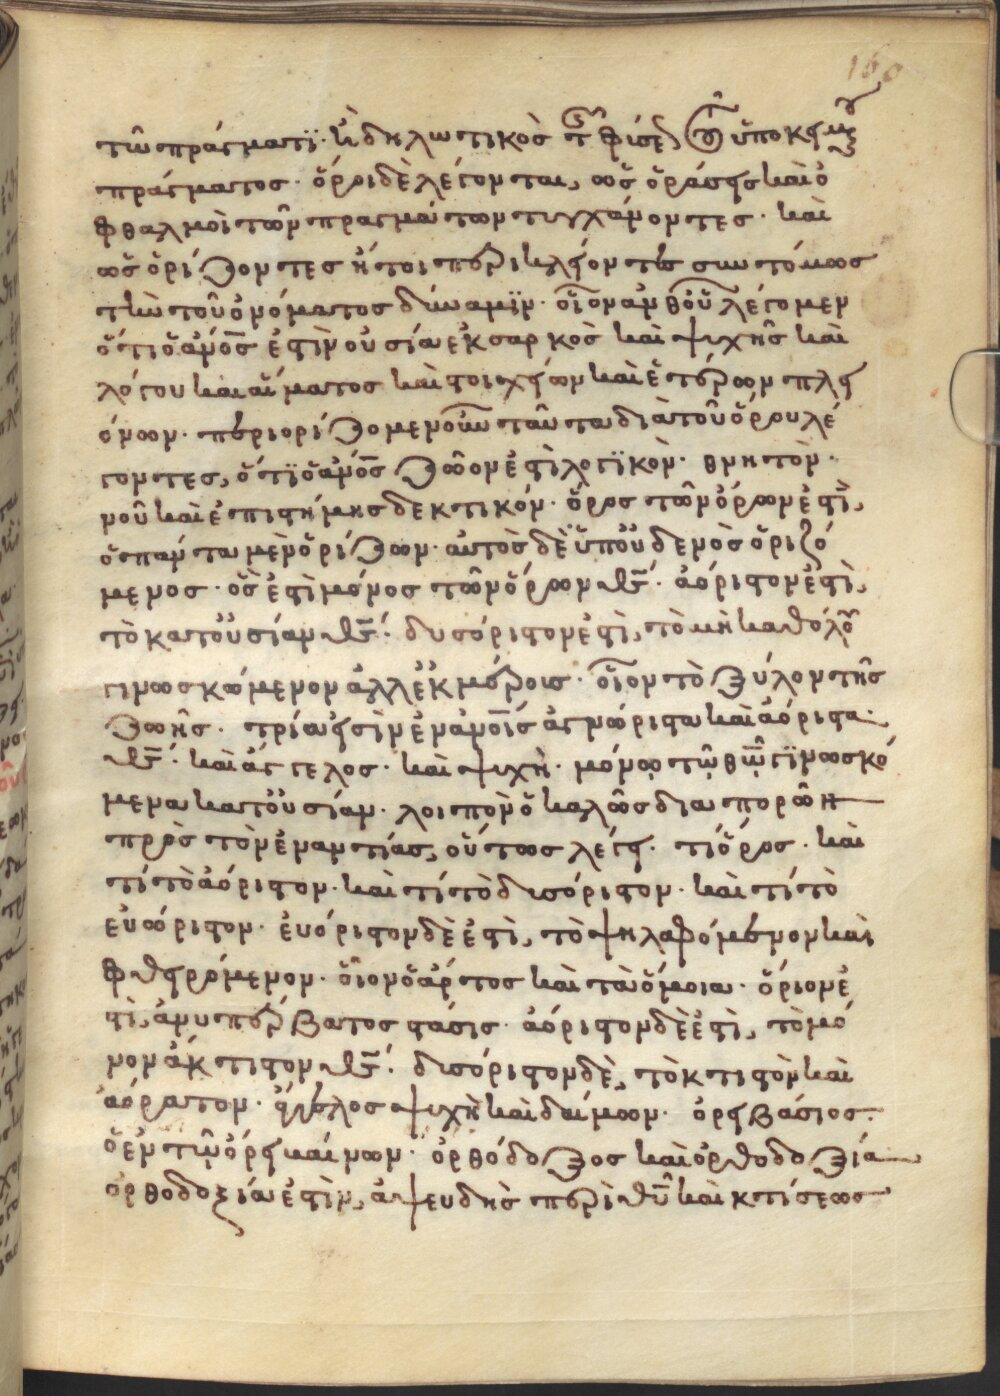 160
τῶ πράγματϊ· ἢ δηλωτικὸς τῆς φύσεως τοῦ ὑποκειμένου
πράγματος· ὅροι δὲ λέγονται, ὡς ὁράσεις καὶ ὀ
φθαλμοὶ τῶν πραγμάτων τυγχάνοντες· καὶ
ὡς ὁρίζοντες ἤτοι περικλείοντες συντόμως
τὴν τοῦ ὀνόματος δύναμϊν· οἷον ἀνθοῦ λέγομεν
ὅτι ὁ ἄνος ἐστὶν οὐσία ἐκ σαρκὸς καὶ ψυχῆς καὶ
λόγου καὶ αἵματος καὶ στοιχείων καὶ ἑτέρων πλει
όνων· περιοριζόμενοι οὖν ταῦτα διὰ τοῦ ὅρου λέ
γοντες, ὅτϊ ὁ ἄνος ζῶον ἐστὶ λογϊκὸν· θνητὸν·
νοῦ καὶ ἐπιστήμης δεκτικόν· ὅρος τῶν ὅρων ἐστὶ,
ὁ πάντα μὲν ὁρίζων· αὐτὸς δὲ ὑπ' οὐδενὸς ὁριζό
μενος· ὅς ἐστὶ μόνος τῶν ὅρων θς· ἀόριστον ἐστὶ,
τὸ κατ' οὐσίαν θς· δυσόριστον ἐστὶ, τὸ μὴ καθόλου
γινωσκώμενον ἀλλ' ἐκ μέρους· οἷον τὸ ξύλον τῆς
ζωῆς· τρία εἰσὶν ἐν ἀνοις ἀγνώριστα καὶ ἀόριστα·
θς· καὶ ἄγγελος· καὶ ψυχὴ· μόνω τῶ θω γϊνωσκό
μενα κατ' οὐσίαν· λοιπὸν ὁ καλῶς διαπορῶν
πρὸς τὸν ἐναντίας, οὕτως λέγει· τί ὅρος· καὶ
τί τὸ ἀόριστον· καὶ τί τὸ δισόριστον· καὶ τί τὸ
εὐόριστον· εὐόριστον δὲ ἐστὶ, τὸ ψηλαφόμενον καὶ
φθειρόμενον· οἷον ὁ ἄρτος καὶ τὰ ὅμοια· ὅριον ἐ
στὶ, ἀνυπέρβατος στάσις· ἀόριστον δὲ ἐστὶ, τὸ μό
νον ἄκτιστον θς· δισόριστον δὲ, τὸ κτιστὸν καὶ
ἀόρατον· ἄγγελος ψυχὴ καὶ δαίμων· ὀρειβάσιος
ὁ ἐν τῶ ὄρει καίνων· ὀρθόδοξος καὶ ὀρθοδοξία
ὀρθοδοξία ἐστὶν, ἀψευδὴς περὶ θυ καὶ κτίσεως